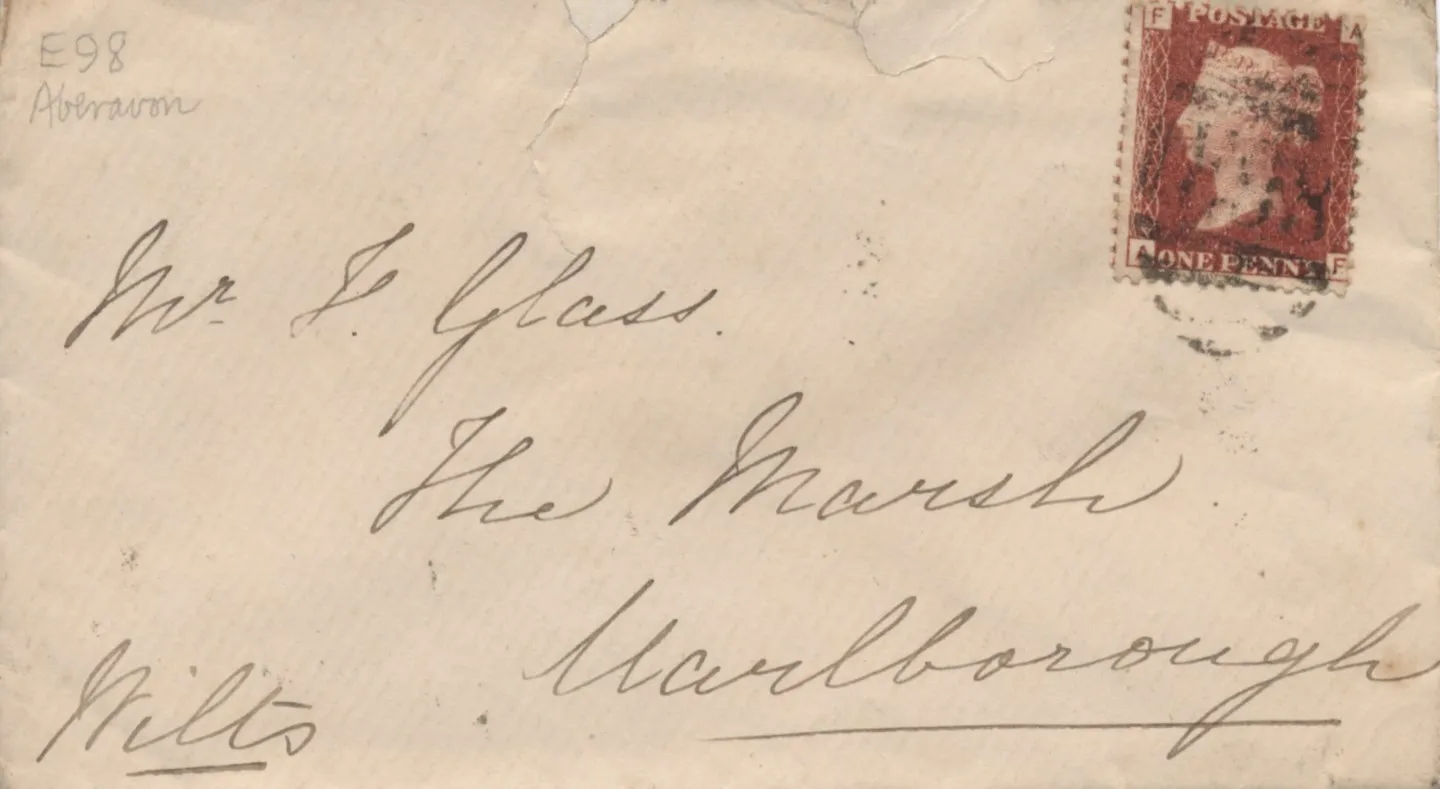 E98
Aberavon
F POSTAGE A
A ONE PENNY F
Mr. F. Glass.
The Marsh.
Marlborough
Wilts